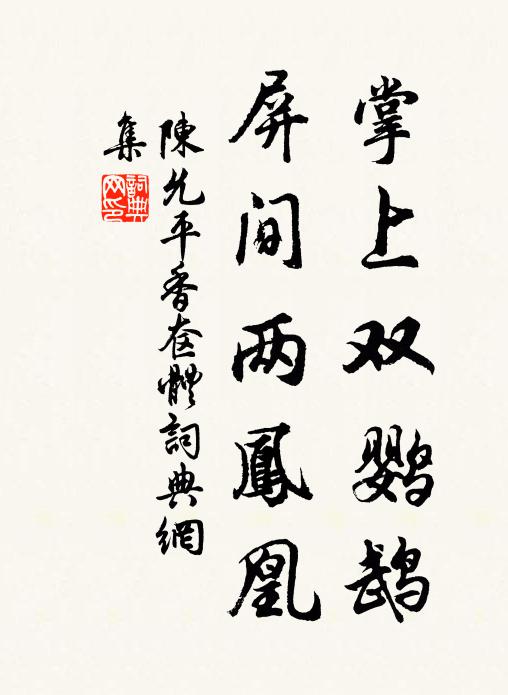 掌上双鹦鹉
屏间两鳳凰
陳允平香奩體詞典網
集
詞典网印